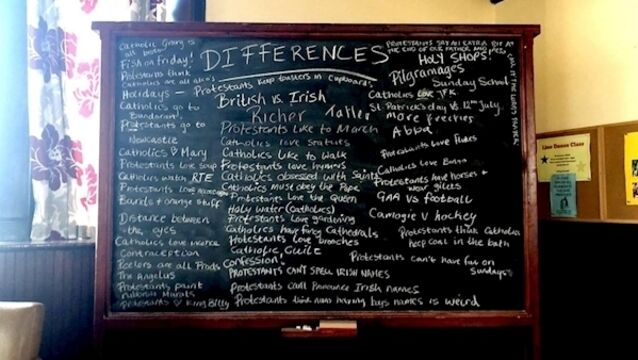 DIFFERENCES
Catholic Gravy is all bisto
Fish on friday!
Protestants think Catholics are all alkies
Holidays -
Catholics go to Bundoran
Protestants go to Newcastle
Catholics ♡ Mary
Protestants love soup
Catholics watch RTE
Protestants love
Bands & orange stuff
Distance between the eyes
Catholics love incence
Contraception
Peelers are all Prods
The Angelus
Protestants paint Murals
Protestants ♡ King Billy
Protestants Keep toasters in Cupboards
British vs. Irish
Richer
Taller
Protestants Like to March
Catholics love Statues
Catholics Like to Walk
Protestants love hymns
Catholics obsessed with Saints
Catholics must obey the Pope
Protestants love the Queen
Holy water (Catholics)
Protestants Love gardening
Catholics have fancy Cathedrals
Protestants love brooches
Catholic Guilt
Confession!
PROTESTANTS CAN'T SPELL IRISH NAMES
Protestants Can't Pronounce Irish names
Protestants think names having is weird
PROTESTANTS SAY AN EXTRA BIT AT THE END OF OUR FATHER AND
CALL IT THE LORDS PRAYER!
HOLY SHOPS!
Pilgramages
Sunday School
Catholics Love J.F.K.
St Patrick's day vs 12th July
More freckles
Abba
Protestants Love Flutes
Catholics Love
Protestants have horses & wear gilets
GAA vs football
Camogie v hockey
Protestants think Catholics keep coal in the bath
Protestants Can't have fun on Sundays
Line Dance Class